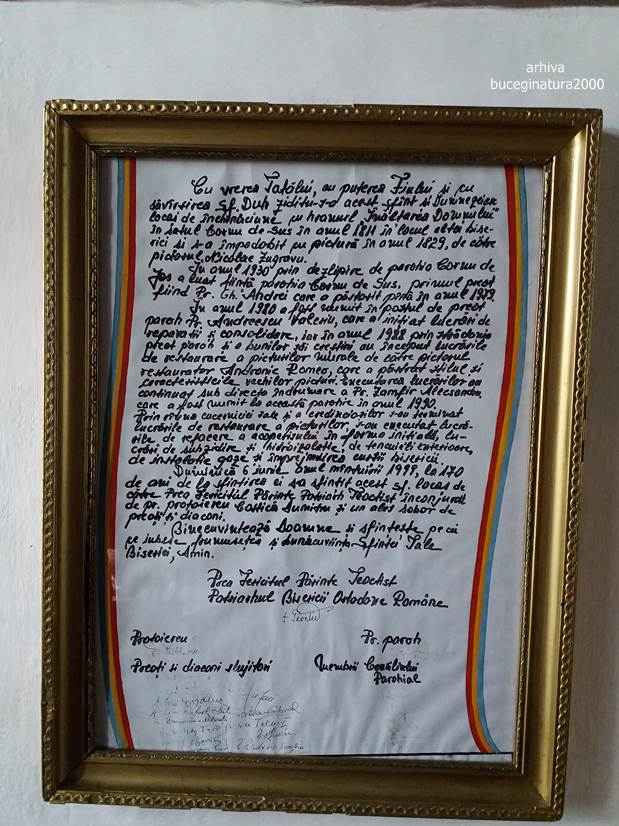 arhiva
buceginatura2000
Cu vrerea Tatălui, cu puterea Fiului și cu
săvîrșirea Sf. Duh ziditu-s-a acest sfînt și Dumnezeiesc
locaș de închinăciune cu hramul "Înălțarea Domnului"
în satul Cornu de Sus în anul 1811 în locul altei bise-
rici și s-a împodobit cu pictură în anul 1829, de către
pictorul Nicolae Zugravu.
În anul 1930 prin dezlipire de parohia Cornu de
Jos a luat ființă parohia Cornu de Sus, primul preot
fiind Pr. Gh. Andrei care a păstorit pînă în anul 1979.
În anul 1980 a fost numit în postul de preot
paroh Pr. Andreescu Valeriu, care a inițiat lucrări de
reparații și consolidare, iar în anul 1988 prin străduința
preot paroh și a bunilor săi creștini au început lucrările
de restaurare a picturilor murale de către pictorul
restaurator Andronic Romeo, care a păstrat stilul și
caracteristicile vechilor picturi. Executarea lucrărilor au
continuat sub directa îndrumare a Pr. Zamfir Alecsandru,
care a fost numit la această parohie în anul 1990.
Prin rîvna cucerniciei sale și a credincioșilor s-au terminat
lucrările de restaurare a picturilor, s-au executat lucră-
rile de refacere a acoperișului în forma inițială, lu-
crări de subzidire și hidroizolație, de tencuieli exterioare,
de instalație gaze și împrejmuire curții bisericii.
Duminică 6 iunie anul mîntuirii 1999, la 170
de ani de la sfințirea ei s-a sfințit acest sf. locaș de
către Prea Fericitul Părinte Patriarh Teoctist înconjurat
de pr. protoiereu Costică Dumitru și un ales sobor de
preoți și diaconi.
Binecuvintează Doamne și sfințește pe cei
ce iubesc frumusețea și bunăcuviința Sfintei Tale
Biserici, Amin.
Prea Fericitul Părinte Teoctist
Patriarhul Bisericii Ortodoxe Române
+ Teoctist
Protoiereu
Pr. paroh
Preoți și diaconi slujitori
Membrii Consiliului
Parohial